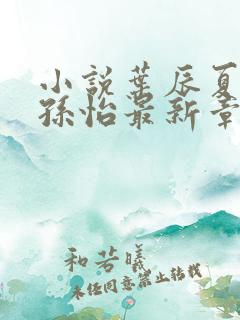 小説葉辰夏
孫怡最新章
和若曦
未经同意禁止转载